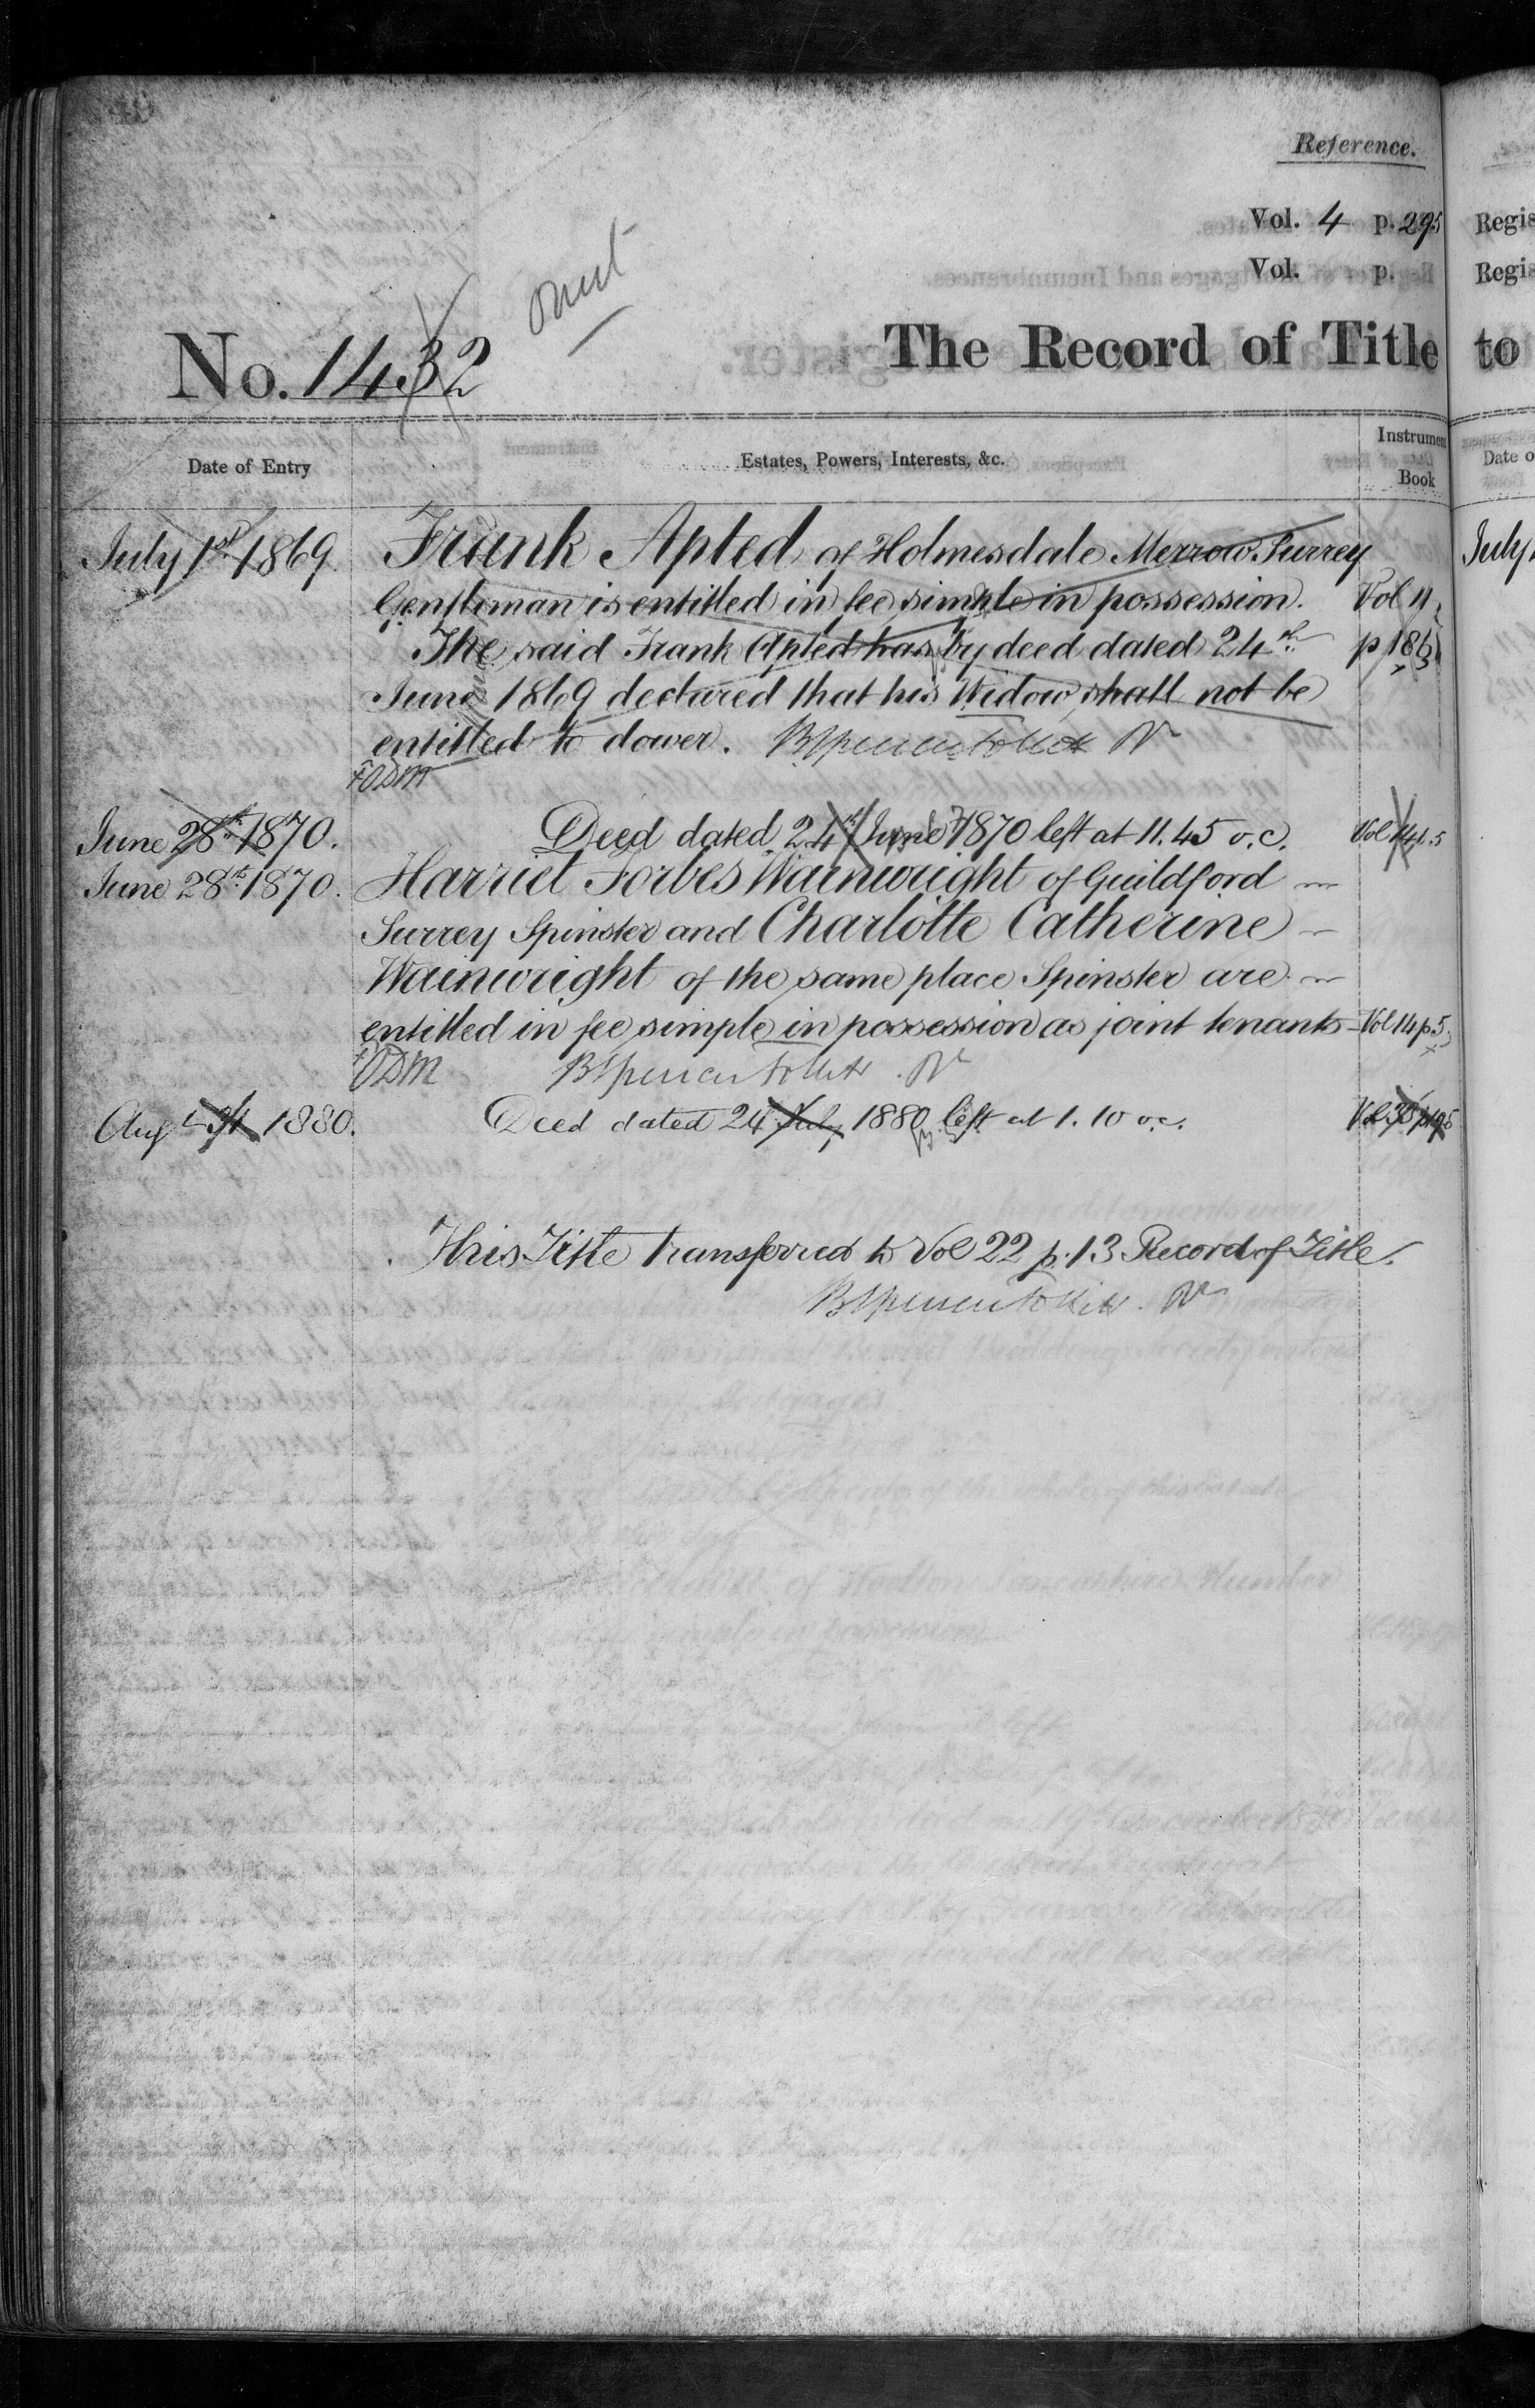 Reference.
Vol. 4 p. 295 Regis
Vol. p. Regis
omit
No. 1432 The Record of Title to
Date of Entry Estates, Powers, Interests, &c. Instrument Book Date o
July 1st 1869. Frank Apted of Holmesdale Merrow Surrey July
Gentleman is entitled in fee simple in possession. Vol 11
The said Frank Apted has by deed dated 24th p 186
June 1869 declared that his Widow shall not be
entitled to dower.
June 28th 1870. Deed dated 24th June 1870 left at 11.45 o.c. Vol 14 p. 5
June 28th 1870. Harriet Forbes Wainwright of Guildford
Surrey Spinster and Charlotte Catherine
Wainwright of the same place Spinster are
entitled in fee simple in possession as joint tenants Vol 14 p 5
Aug 1880. Deed dated 24 July 1880 left at 1.10 o.c. Vol 35 p 195
This Title transferred to Vol 22 p. 13 Record of Title.